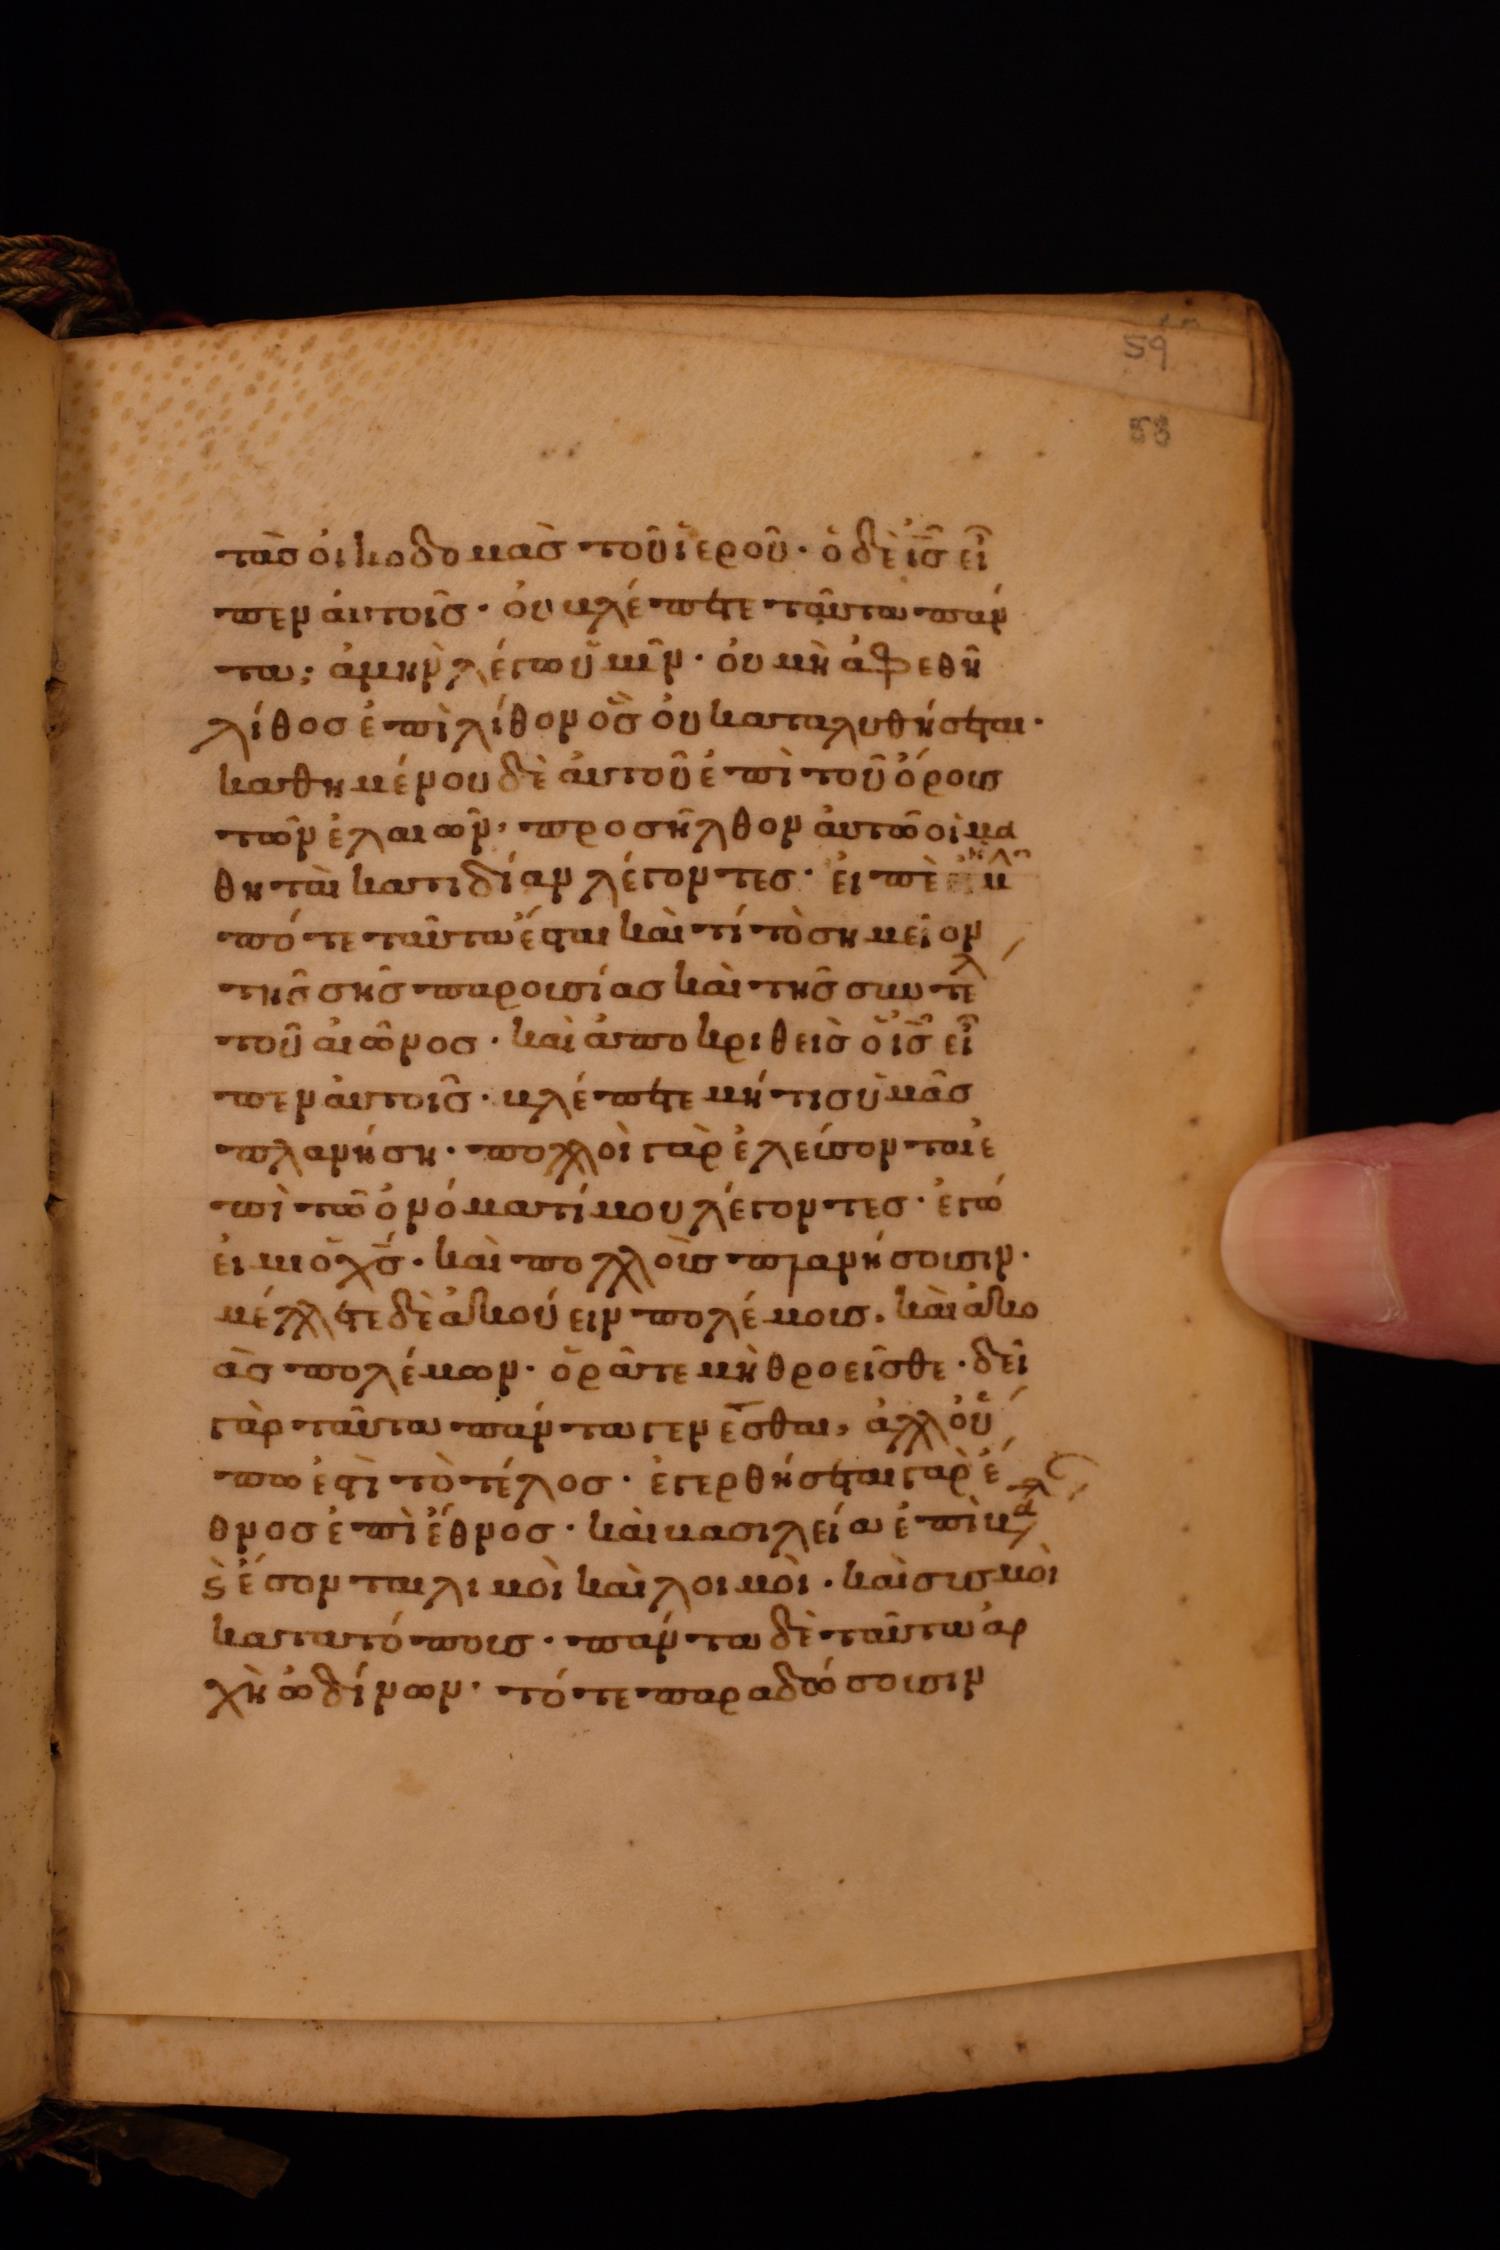 59
58
τὰσ ὀικοδομὰσ τοῦ ἱεροῦ· ὁ δὲ ἰ̅σ̅ εἶ
πεν ἀυτοῖσ· ὀυ βλέπετε ταῦτα πάν
τα; ἀμὴν λέγω ὑμῖν· ὀυ μὴ ἀφεθῆ
λίθοσ ἐπὶ λίθον ὃσ ὀυ καταλυθήσεται·
καθημένου δὲ ἀυτοῦ ἐπὶ τοῦ ὄρουσ
τῶν ἐλαιῶν, προσῆλθον ἀυτῶ οἱ μα
θηταὶ κατιδίαν λέγοντεσ· ἐιπὲ ἡμ
πότε ταῦτα ἔσται καὶ τί τὸ σημεῖον
τῆσ σῆσ παρουσίασ καὶ τῆσ συντελ
τοῦ ἀιῶνοσ· καὶ ἀποκριθεὶσ ὁ ἰ̅σ̅ εἶ
πεν ἀυτοῖσ· βλέπετε μή τισ ὑμᾶσ
πλανήση· πολλοὶ γὰρ ἐλεύσονται ἐ
πὶ τῶ ὀνόματί μου λέγοντεσ· ἐγώ
ἐιμι ὁ χ̅σ̅· καὶ πολλοὺσ πλανήσουσιν·
μέλλετε δὲ ἀκούειν πολέμουσ· καὶ ἀκο
ὰσ πολέμων· ὁρᾶτε μὴ θροεῖσθε· δεῖ
γὰρ ταῦτα πάντα γενέσθαι, ἀλλ' οὔ
πω ἐστὶ τὸ τέλοσ· ἐγερθήσεται γὰρ ἔ
θνοσ ἐπὶ ἔθνοσ· καὶ βασιλεία ἐπὶ βα
ϛ̀ ἔσονται λιμοὶ καὶ λοιμοὶ· καὶ σισμοὶ
κατατόπουσ· πάντα δὲ ταῦτα ἀρ
χὴ ὠδίνων· τότε παραδώσουσιν